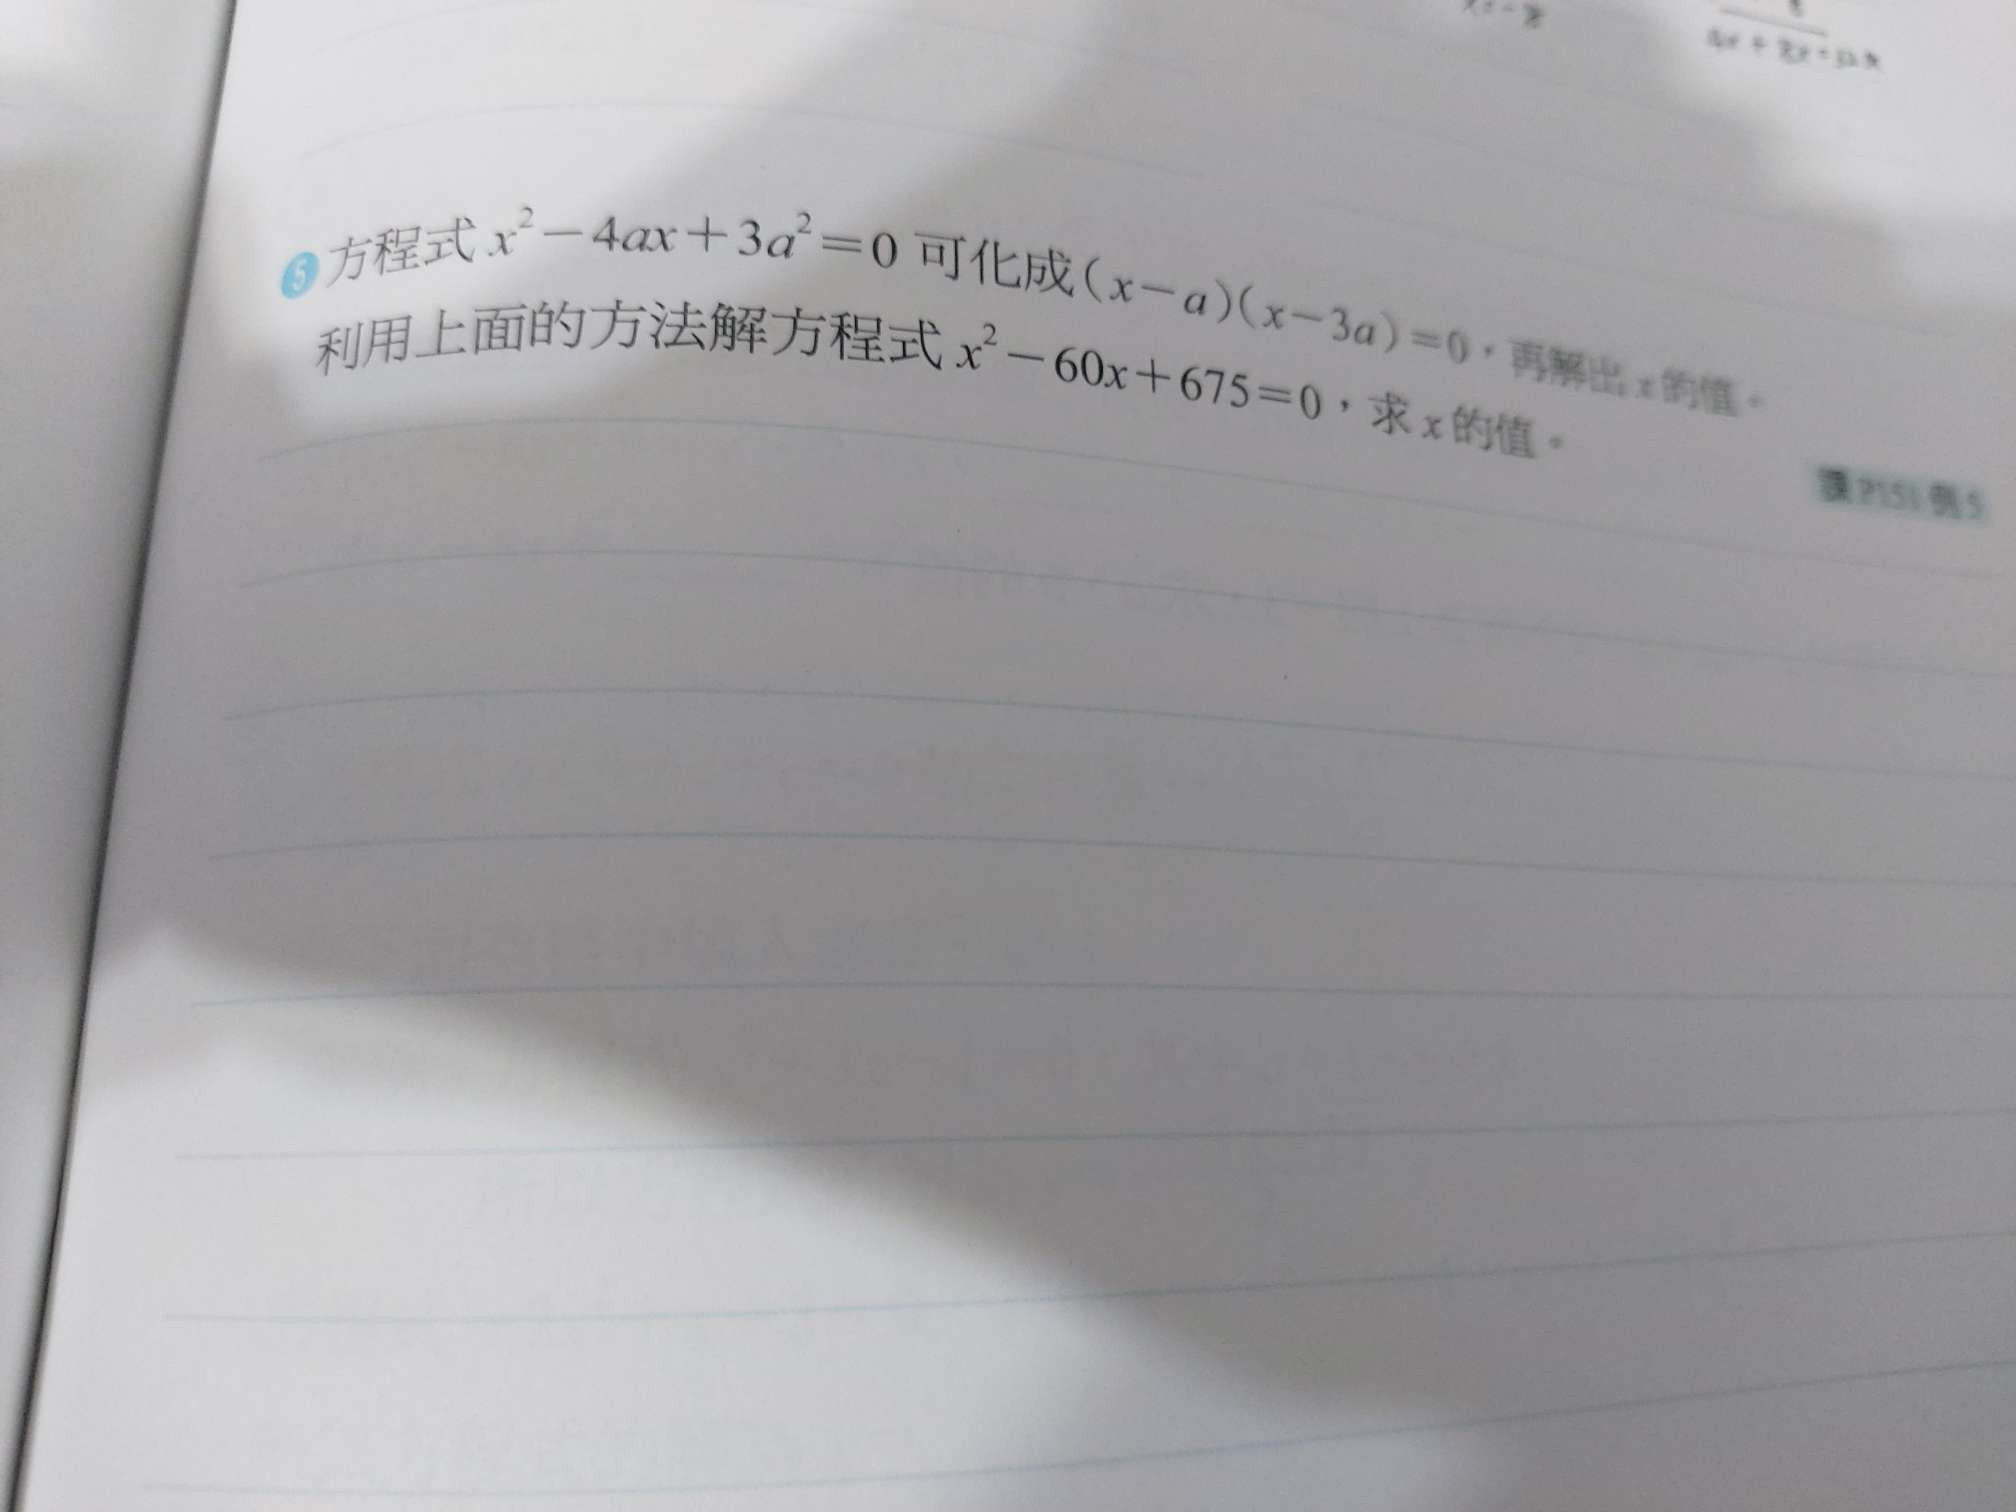 5 方程式 x²−4ax+3a²=0 可化成(x−a)(x−3a)=0，再解出 x 的值。
利用上面的方法解方程式 x²−60x+675=0，求 x 的值。
課P151例5